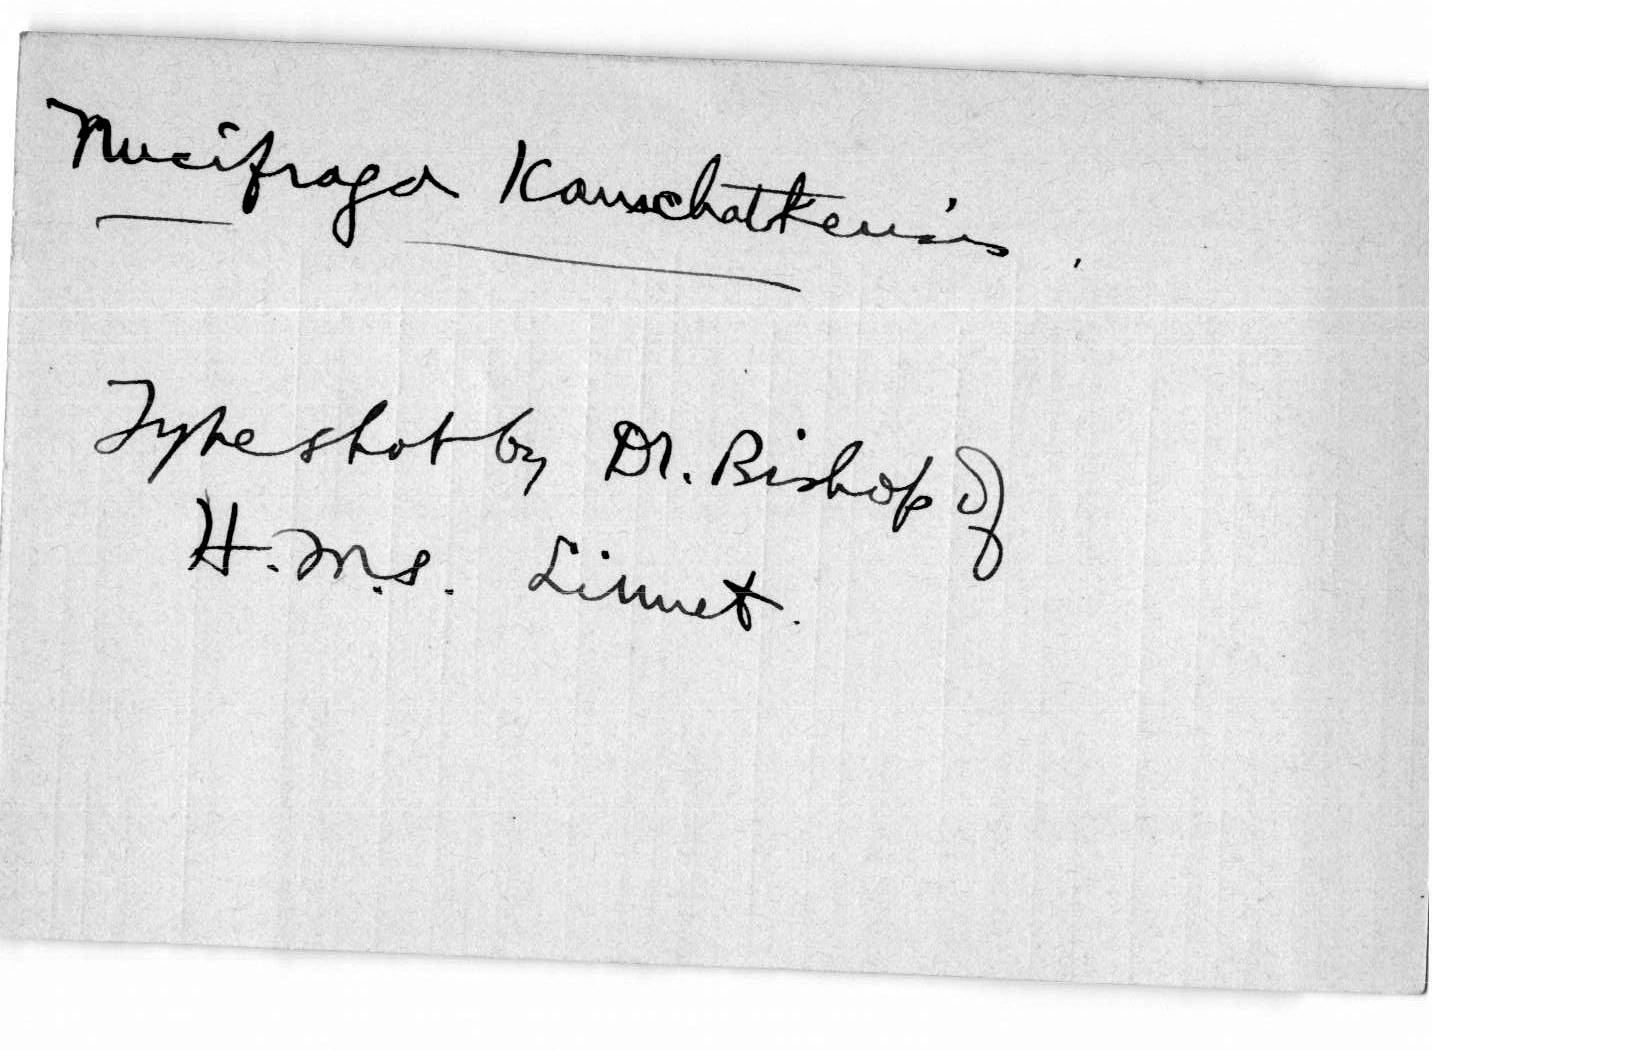 Nucifraga Kamschatkensis.
Type shot by Dr. Bishop of
H.M.S. Linnet.